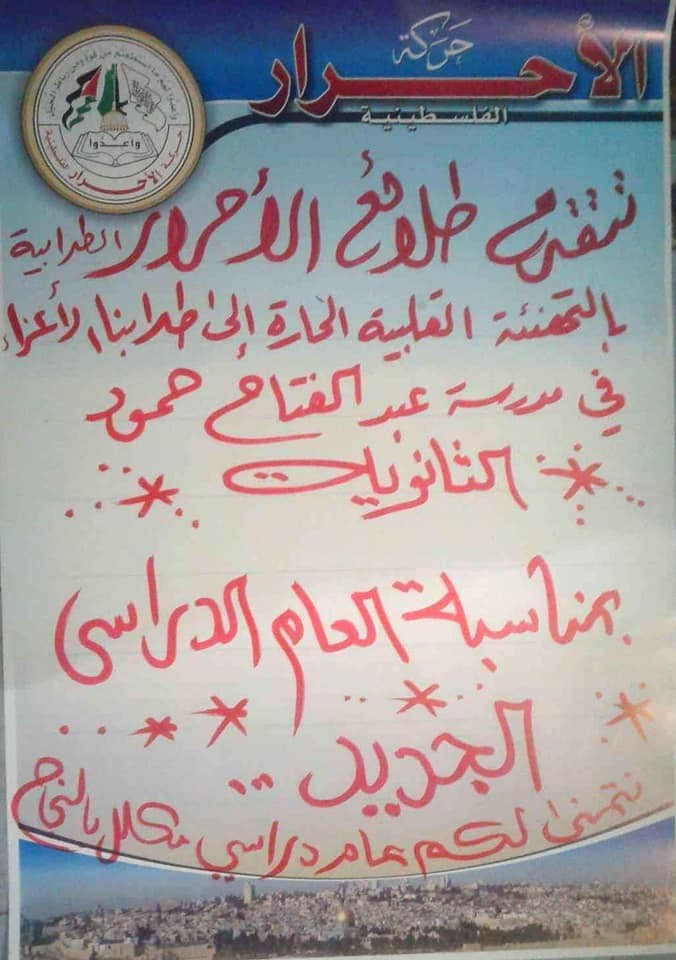 حركة
الأحرار
الفلسطينية
وأعدوا
حركة الأحرار الفلسطينية
تتقدم طلائع الأحرار الطلابية
بالتهنئة القلبية الحارة إلى طلابنا الأعزاء
في مدرسة عبد الفتاح حمود
الثانوية
بمناسبة العام الدراسي
الجديد ..
نتمنى لكم عام دراسي مكلل بالنجاح